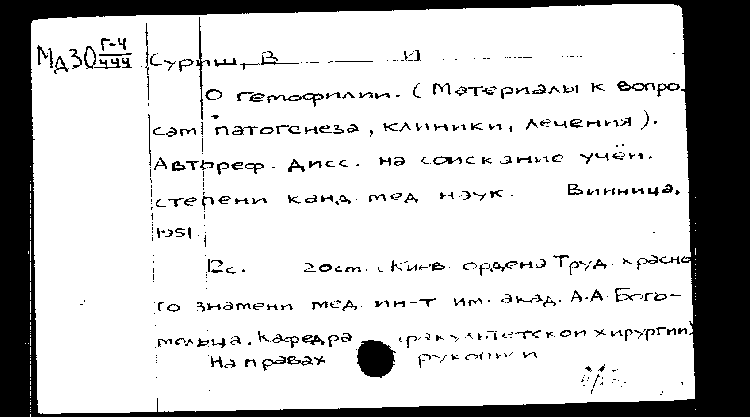 Мд30 Г-4/444 Суриш, В И
О гемофилии. (Материалы к вопро-
сам патогенеза, клиники, лечения).
Автореф. дисс. на соискание учён.
степени канд. мед. наук. Винница,
1951.
12с. 20см. (Киев. ордена Труд. красно-
го знамени мед. ин-т им. акад. А.А. Бого-
мольца. Кафедра факультетской хирургии)
На правах рукописи